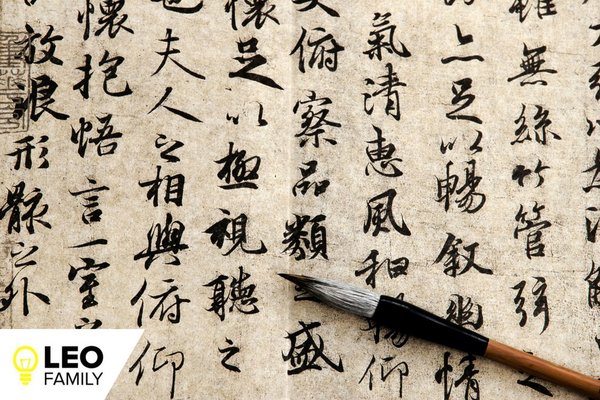 雖無絲竹管弦之
亦足以暢敘幽情
氣清惠風和暢仰
俯察品類之盛
懷足以極視聽之
也夫人之相與俯仰
懷抱悟言一室之
放浪形骸之外
LEO
FAMILY